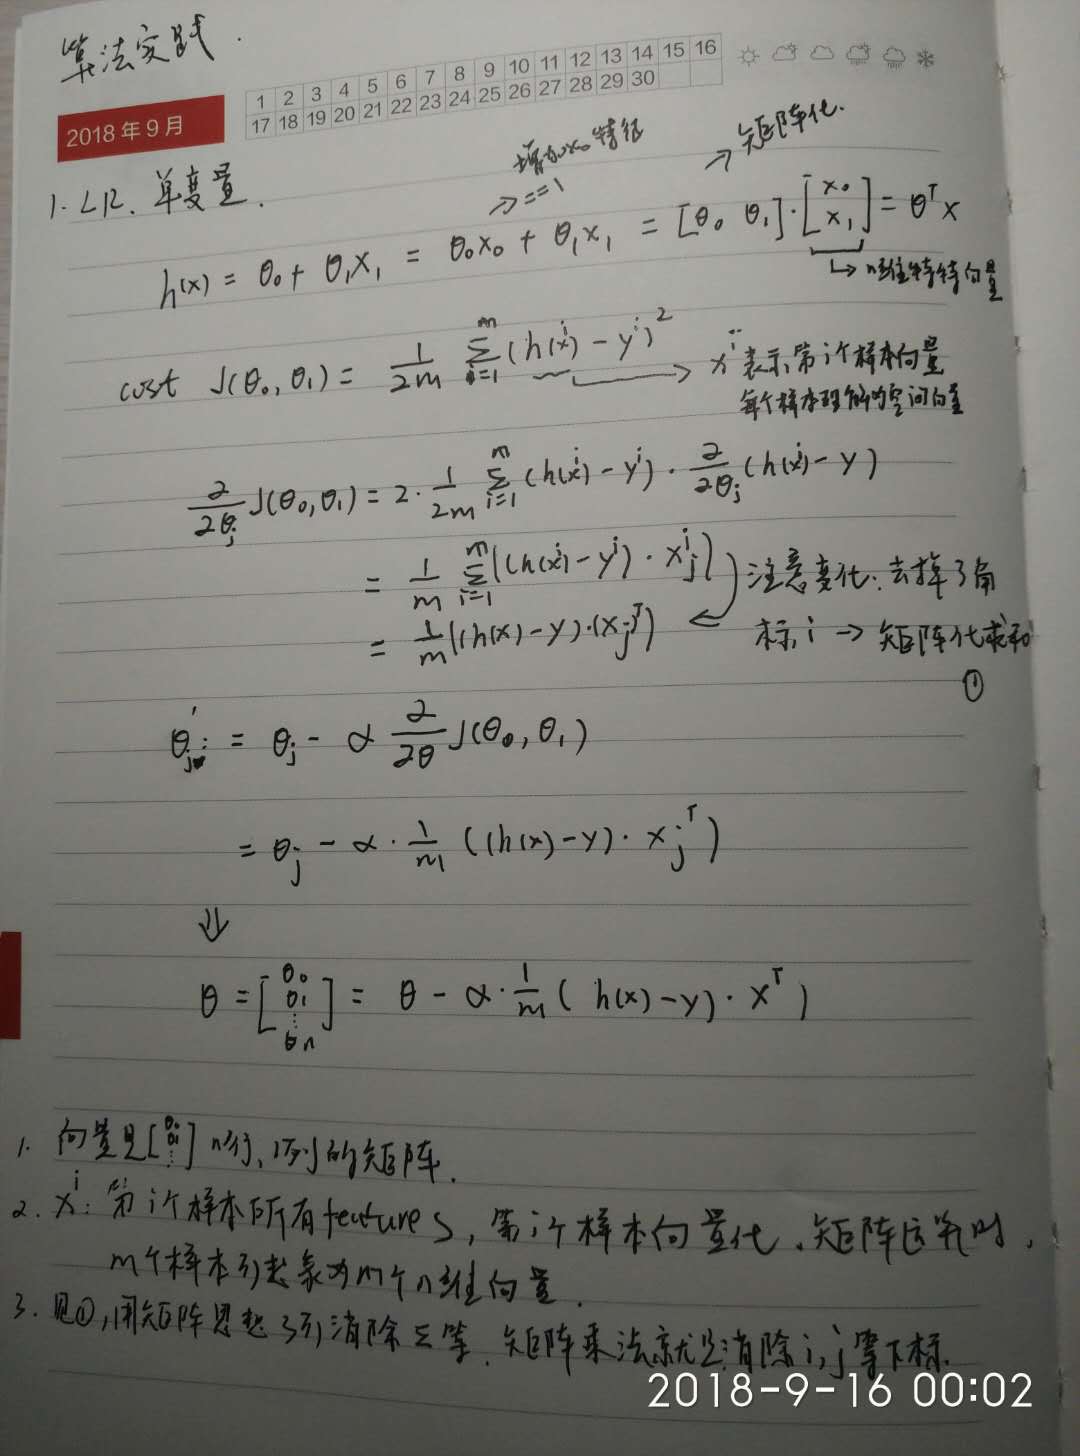 算法实践.
1 2 3 4 5 6 7 8 9 10 11 12 13 14 15 16
17 18 19 20 21 22 23 24 25 26 27 28 29 30
2018年9月
增加x₀特征
→ ==1
→ 矩阵化.
1. LR. 单变量.
h(x) = θ₀ + θ₁x₁ = θ₀x₀ + θ₁x₁ = [θ₀ θ₁]·[x₀ x₁] = θᵀx
↳ n维特向量
cost J(θ₀, θ₁) = 1/2m Σᵢ₌₁ᵐ (h(xⁱ) - yⁱ)² → xⁱ 表示第i个样本向量
每个样本理解为空间向量
∂/∂θⱼ J(θ₀, θ₁) = 2 · 1/2m Σᵢ₌₁ᵐ (h(xⁱ) - yⁱ) · ∂/∂θⱼ (h(xⁱ) - y)
= 1/m Σᵢ₌₁ᵐ ((h(xⁱ) - yⁱ) · xⱼⁱ) 注意变化: 去掉了角
= 1/m ((h(x) - y)·(xⱼᵀ) ← 标i → 矩阵化求和
①
θⱼ' := θⱼ - α ∂/∂θ J(θ₀, θ₁)
= θⱼ - α · 1/m ((h(x) - y) · xⱼᵀ)
⇓
θ = [θ₀ θ₁ ⋮ θn] = θ - α · 1/m (h(x) - y) · xᵀ)
1. 向量是[θ₀ θ₁ ⋮] n行, 1列的矩阵.
2. xⁱ: 第i个样本所有features, 第i个样本向量化. 矩阵运算时,
m个样本可想象为m个n维向量.
3. 见①, 用矩阵思想可消除Σ等. 矩阵乘法就是消除i, j等下标.
2018-9-16 00:02